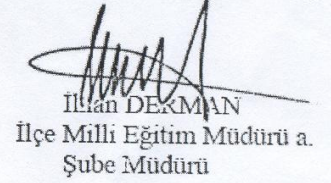 İlhan DERMAN
İlçe Milli Eğitim Müdürü a.
Şube Müdürü